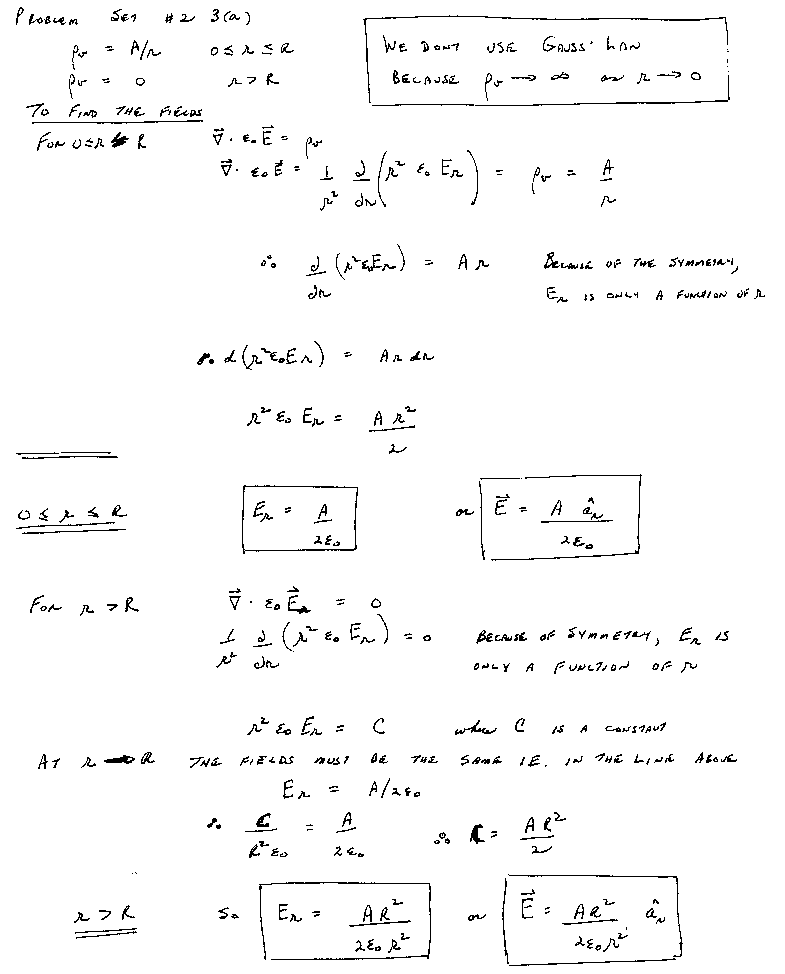 PROBLEM SET #2 3(a)
ρv = A/r 0 ≤ r ≤ R
ρv = 0 r > R
WE DONT USE GAUSS' LAW
BECAUSE ρv → ∞ as r → 0
TO FIND THE FIELDS
FOR 0≤r R ∇⃗ · ε₀E⃗ = ρv
∇⃗ · ε₀E⃗ = 1/r² ∂/∂r (r² ε₀ Er) = ρv = A/r
∴ ∂/∂r (r²ε₀Er) = A r BECAUSE OF THE SYMMETRY,
Er IS ONLY A FUNCTION OF r
∴ d(r²ε₀Er) = Ar dr
r² ε₀ Er = A r²/2
0 ≤ r ≤ R Er = A/2ε₀ or E⃗ = A âr/2ε₀
FOR r > R ∇⃗ · ε₀E⃗ = 0
1/r² ∂/∂r (r² ε₀ Er) = 0 BECAUSE OF SYMMETRY, Er IS
ONLY A FUNCTION OF r
r² ε₀ Er = C where C IS A CONSTANT
AT r → R THE FIELDS MUST BE THE SAME IE. IN THE LINE ABOVE
Er = A/2ε₀
∴ C/R²ε₀ = A/2ε₀ ∴ C = AR²/2
r > R So Er = AR²/2ε₀r² or E⃗ = AR²/2ε₀r² âr